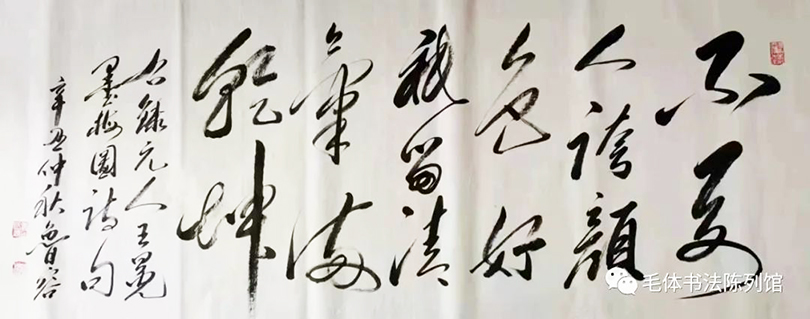 不要
人誇顏
色好
祇留清
氣滿
乾坤
右錄元人王冕
墨梅圖詩句
辛丑仲秋魯谷
毛体书法陈列馆